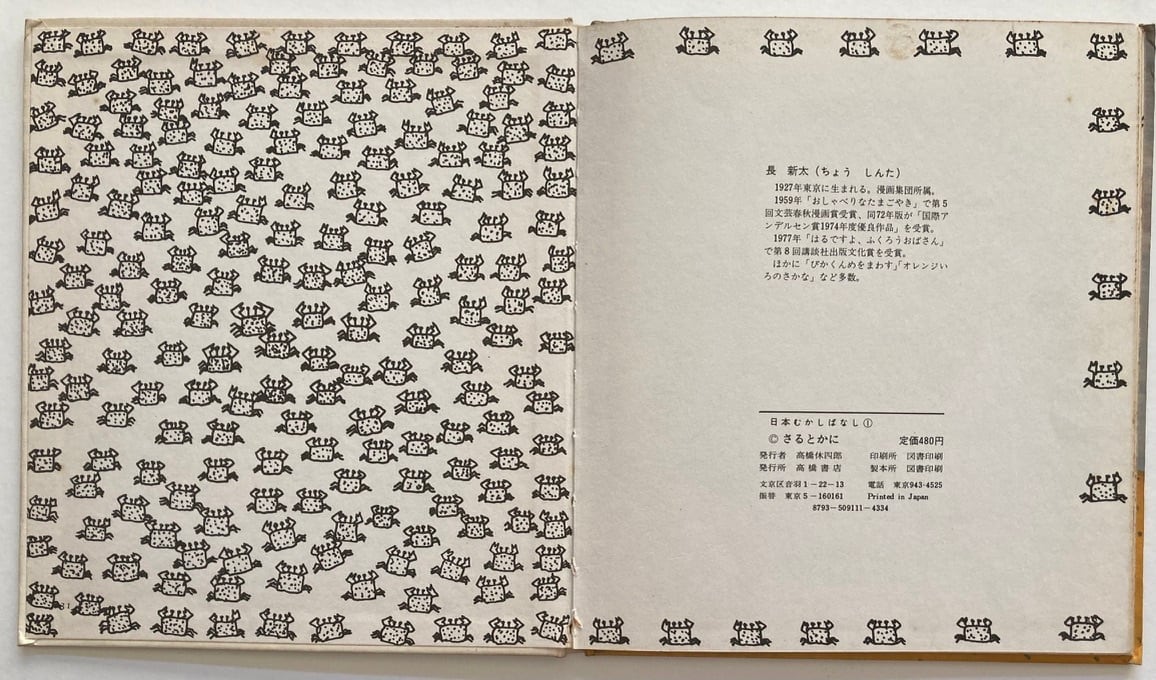 長　新太（ちょう　しんた）
1927年東京に生まれる。漫画集団所属。
1959年「おしゃべりなたまごやき」で第5
回文芸春秋漫画賞受賞、同72年版が「国際ア
ンデルセン賞1974年度優良作品」を受賞。
1977年「はるですよ、ふくろうおばさん」
で第8回講談社出版文化賞を受賞。
ほかに「ぴかくんめをまわす」「オレンジい
ろのさかな」など多数。
日本むかしばなし①
© さるとかに　定価480円
発行者　高橋休四郎　印刷所　図書印刷
発行所　高橋書店　製本所　図書印刷
文京区音羽1－22－13　電話　東京943-4525
振替　東京5－160161　Printed in Japan
8793－509111－4334